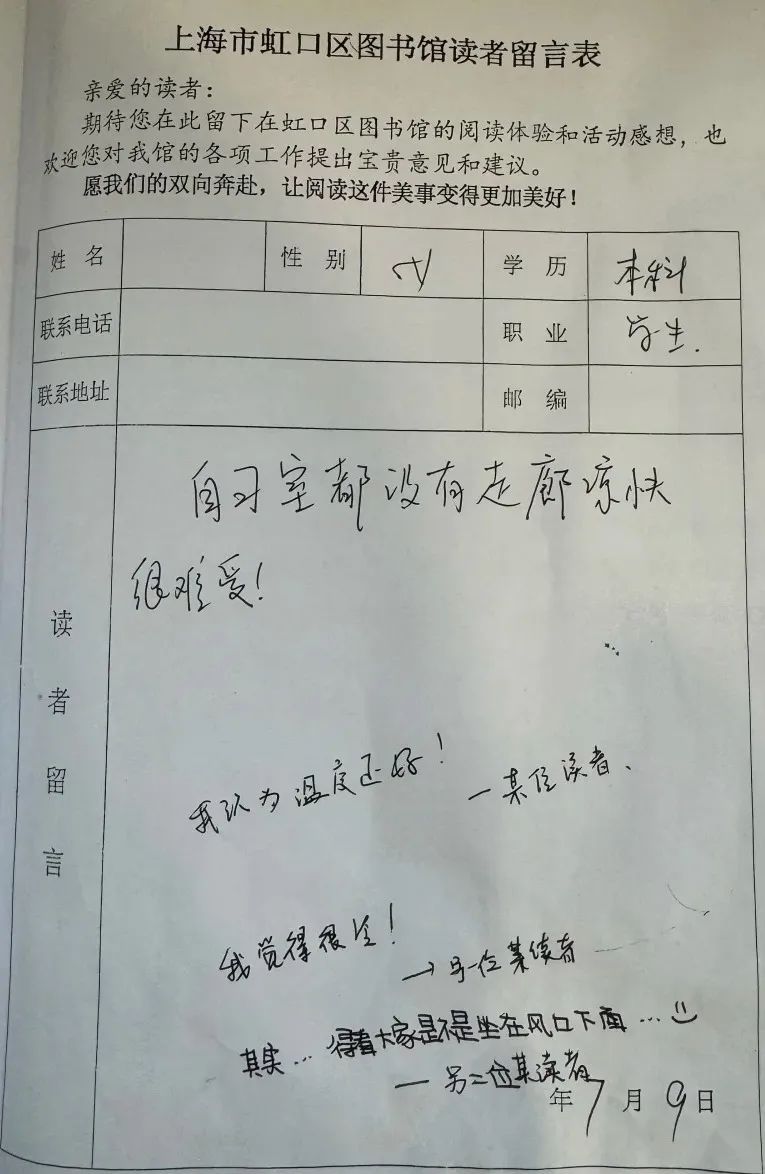 上海市虹口区图书馆读者留言表
亲爱的读者：
期待您在此留下在虹口区图书馆的阅读体验和活动感想，也
欢迎您对我馆的各项工作提出宝贵意见和建议。
愿我们的双向奔赴，让阅读这件美事变得更加美好！
姓 名 性 别 女 学 历 本科
联系电话 职 业 学生.
联系地址 邮 编
读者留言
自习室都没有走廊凉快
很难受！
我认为温度还好！
—某位读者、
我觉得很冷！
→另一位某读者
其实… 得看大家是不是坐在风口下面…
—另二位某读者
年7月9日